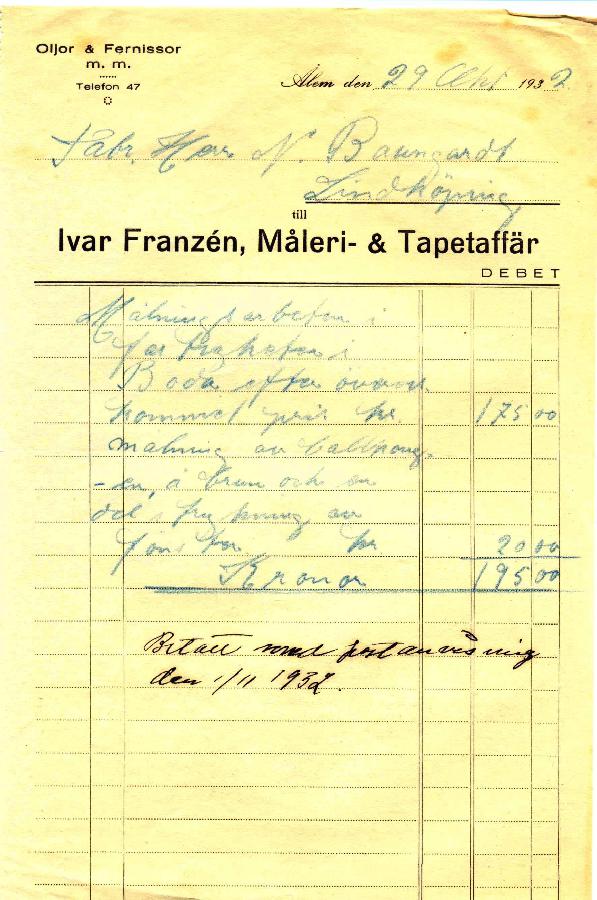 Oljor & Fernissor
m. m.
Telefon 47
Ålem den 29 Okt 1932
Fabr. Herr N. Baumgardt
Lindköping
till
Ivar Franzén, Måleri- & Tapetaffär
DEBET
Målningsarbeten i
i
Boda efter överens
kommet pris kr. 175 00
målning av
-en, å brun och en
del av
fönster kr 20 00
Kronor 195 00
Betalt med postanvisning
den 1/11 1932.